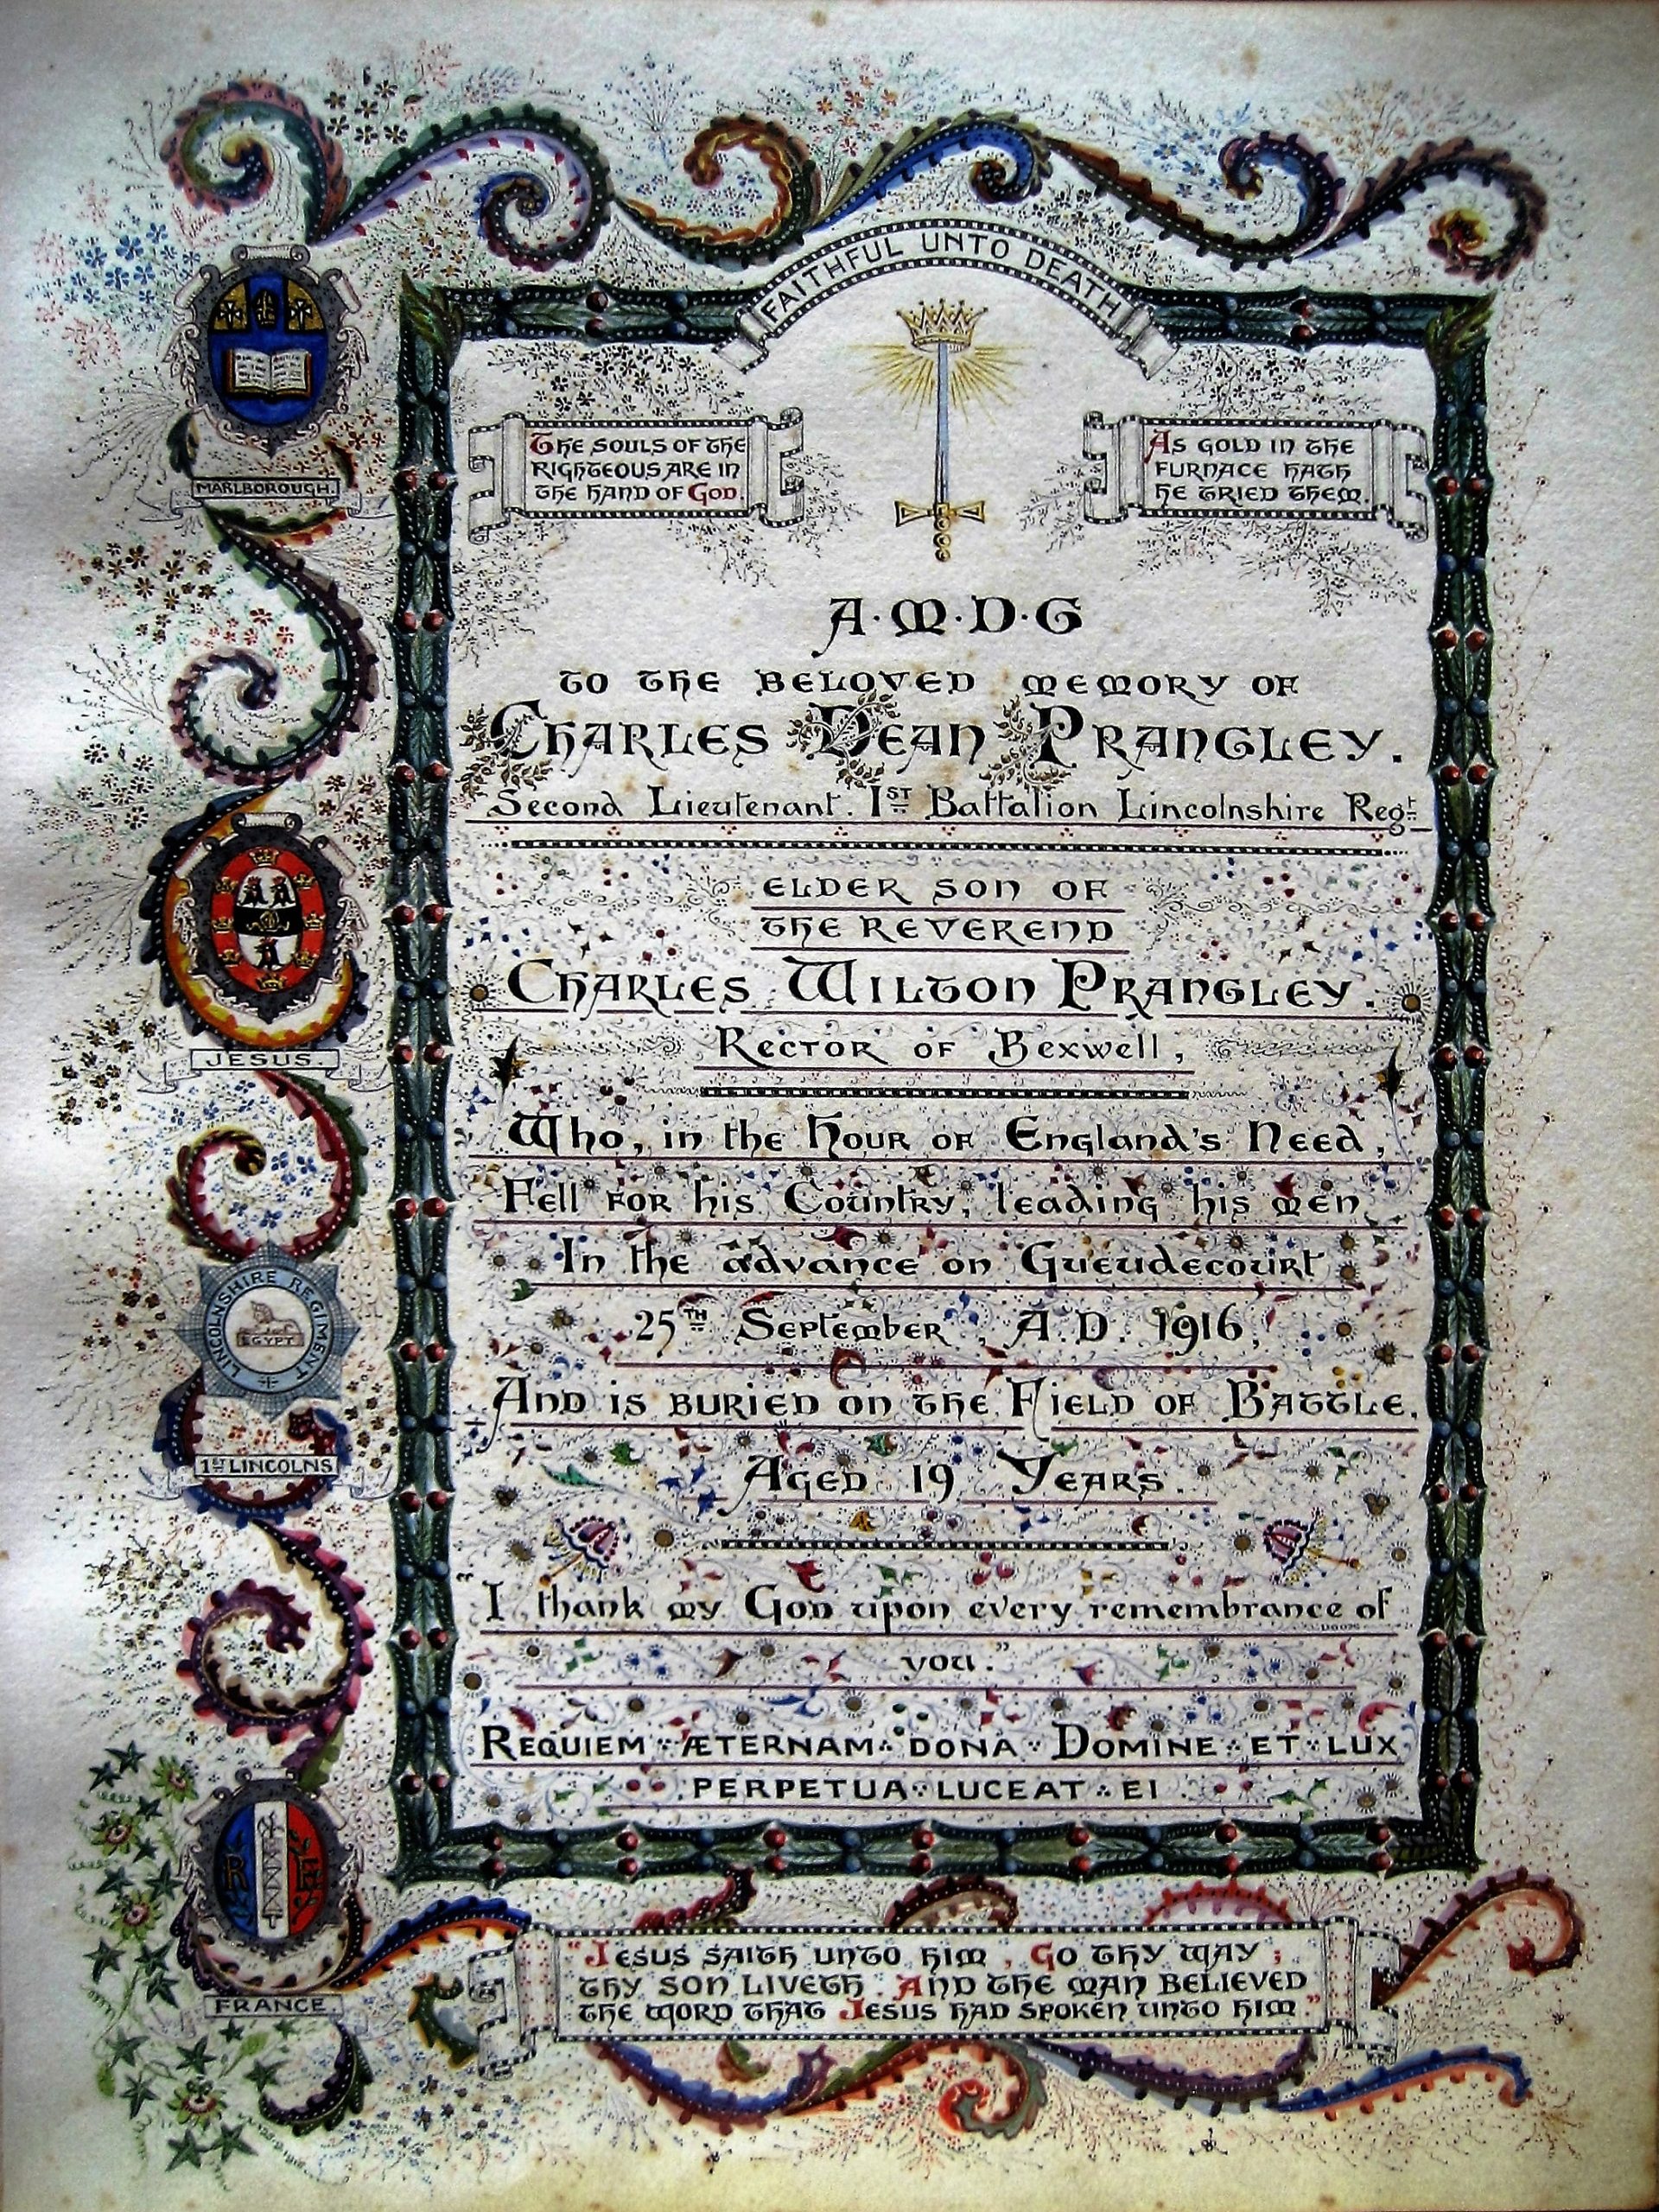 FAITHFUL UNTO DEATH
The souls of the
righteous are in
the hand of God.
As gold in the
furnace hath
he tried them.
A·M·D·G
to the beloved memory of
Charles Dean Prangley.
Second Lieutenant. 1ST Battalion Lincolnshire Regt
elder son of
the Reverend
Charles Wilton Prangley.
Rector of Bexwell,
Who, in the Hour of England's Need,
Fell for his Country, leading his men
In the advance on Gueudecourt
25TH September, A.D. 1916,
And is buried on the Field of Battle.
Aged 19 Years.
"I thank my God upon every remembrance of
you."
Requiem æternam dona Domine et lux
perpetua luceat ei
MARLBOROUGH.
JESUS.
LINCOLNSHIRE REGIMENT
EGYPT
1ST LINCOLNS
R F
FRANCE.
"Jesus saith unto him, Go thy way;
thy son liveth. And the man believed
the word that Jesus had spoken unto him."